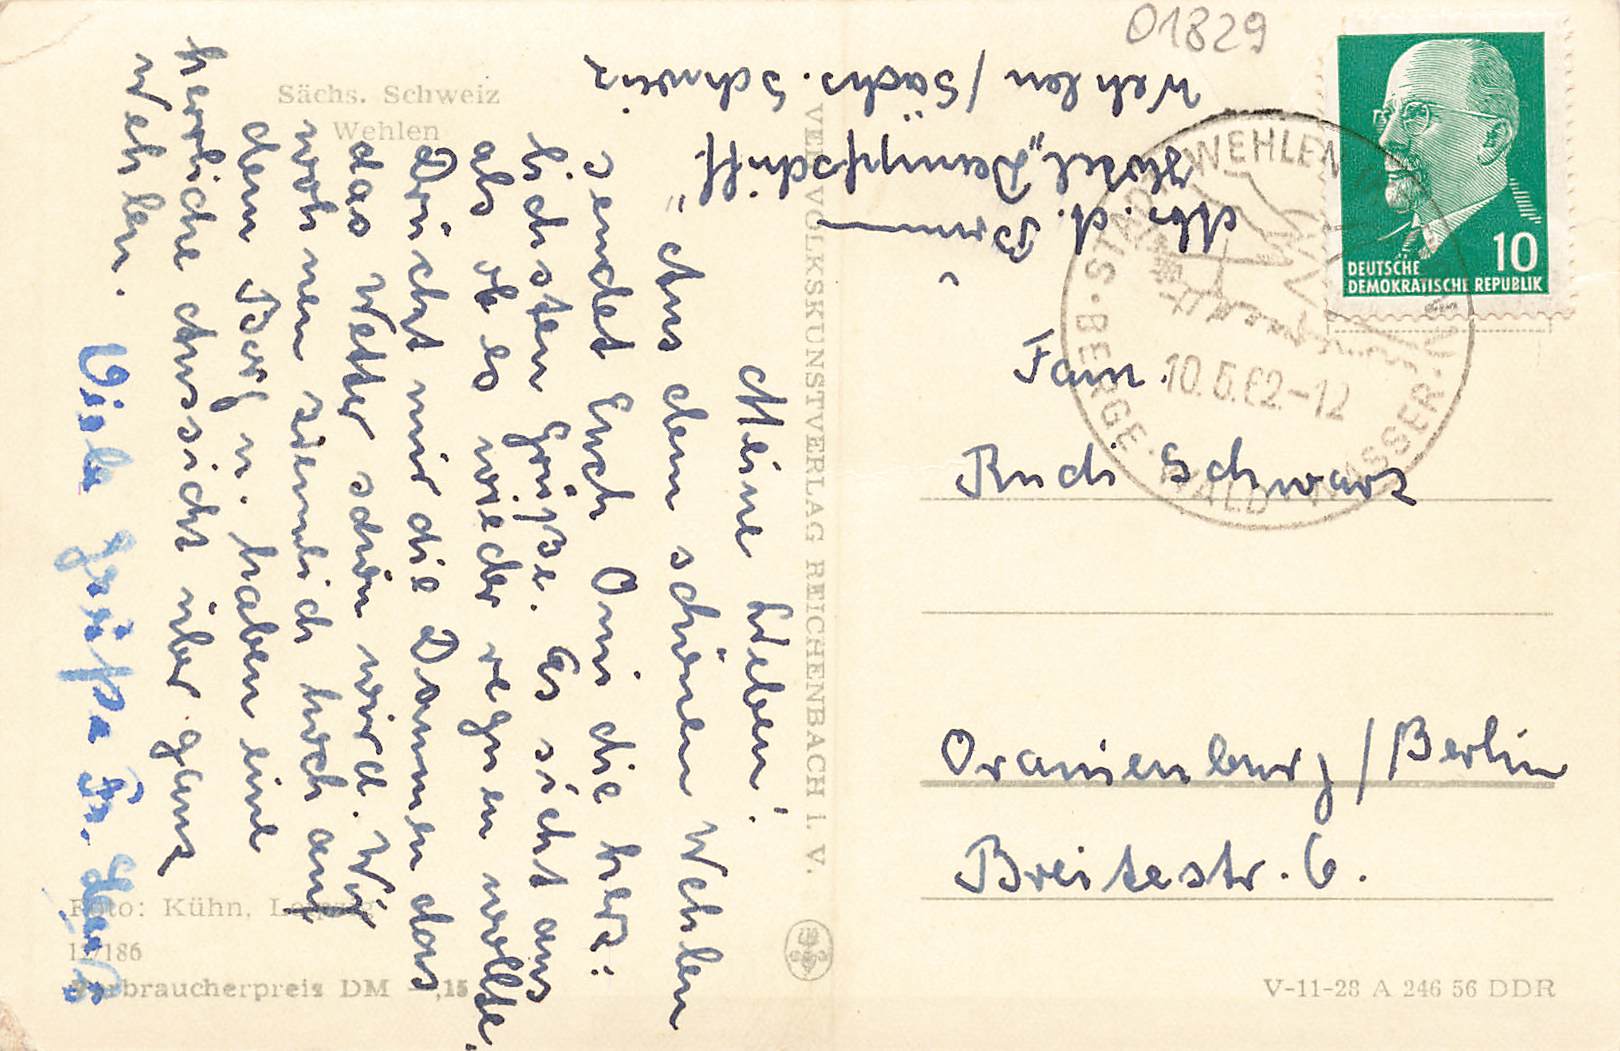 01829
Sächs. Schweiz
Wehlen
Meine Lieben!
Aus dem schönen Wehlen
sendet Euch Omi die herz-
lichsten Grüße. Es sieht aus
als ob es wieder regnen wollte.
Drückt mir die Daumen das
das Wetter schön wird. Wir
wohnen ziemlich hoch auf
dem Berg u. haben eine
herrliche Aussicht über ganz
Wehlen.
Viele Grüße
Abs. d.
Hotel „Dampfschiff"
Wehlen/Sächs. Schweiz
VERLAG VOLKSKUNSTVERLAG REICHENBACH I. V.
DEUTSCHE
DEMOKRATISCHE REPUBLIK
10
STADT WEHLEN
BERGE · WALD · WASSER
10.5.62-12
Fam.
Rudi Schwarz
Oranienburg/Berlin
Breitestr. 6.
Foto: Kühn, Leipzig
12/186
Verbraucherpreis DM -,15
V-11-28 A 246 56 DDR